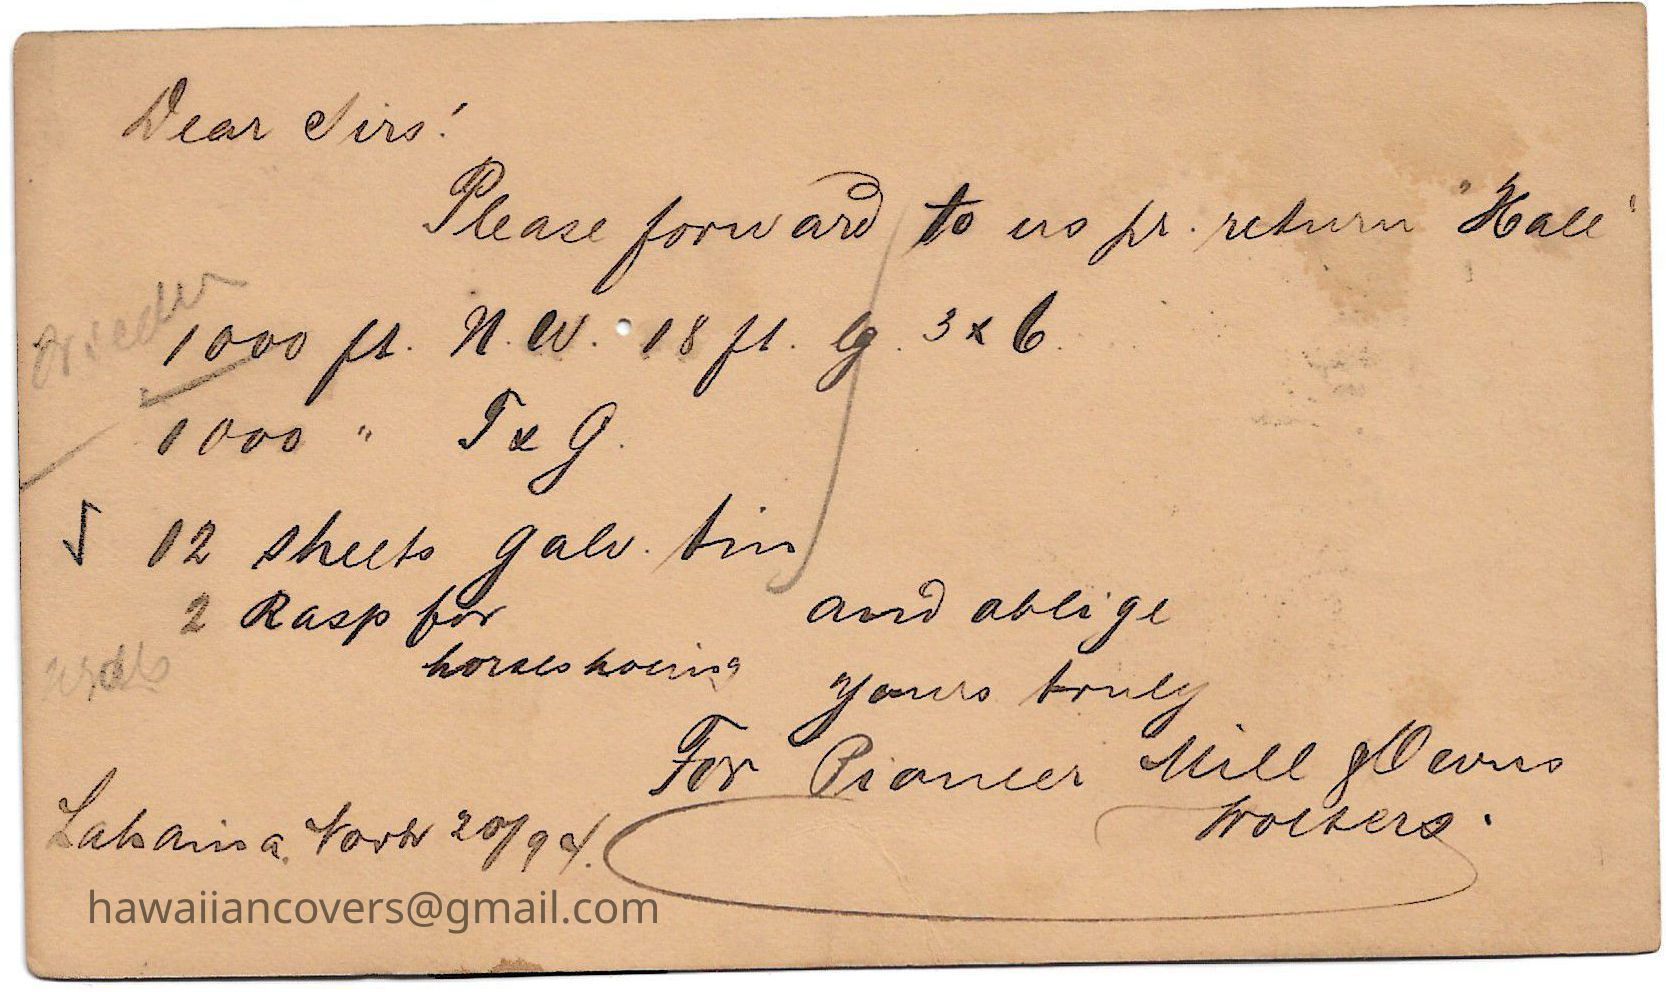 Dear Sirs!
Please forward to us pr. return "Hall"
1000 ft. N.W. 18 ft. lg. 3x6.
1000 " T & G.
12 sheets galv. tin
2 Rasp for
horseshoeing
and oblige
yours truly
For Pioneer Mill
Wolters.
Lahaina. Novbr 20/94.
hawaiiancovers@gmail.com